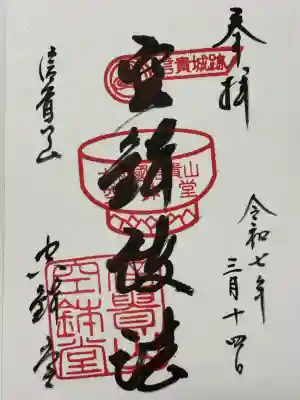 奉拝
令和七年
三月十四日
空鉢護法
信貴山
空鉢堂
信貴城跡
信貴山
空鉢堂